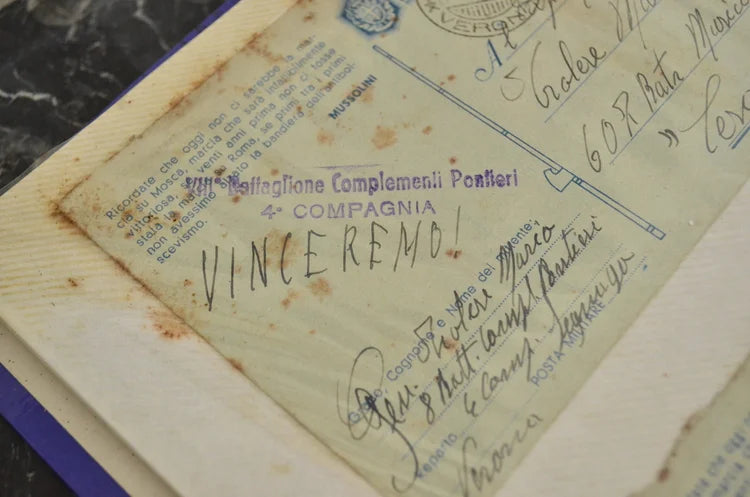 VERONA
Ricordate che oggi non ci sarebbe la mar-
cia su Mosca, marcia che sarà infallibilmente
vittoriosa, se venti anni prima non ci fosse
stata la marcia su Roma, se primi tra i primi
non avessimo alzato la bandiera dell'antibol-
scevismo.
MUSSOLINI
VIII° Battaglione Complementi Pontieri
4ª COMPAGNIA
VINCEREMO!
Al
60R Bata
Grado, Cognome e Nome del mittente:
Mario
8 Batt. Compl. Pontieri
Reparto 4 Comp.
POSTA MILITARE
Verona